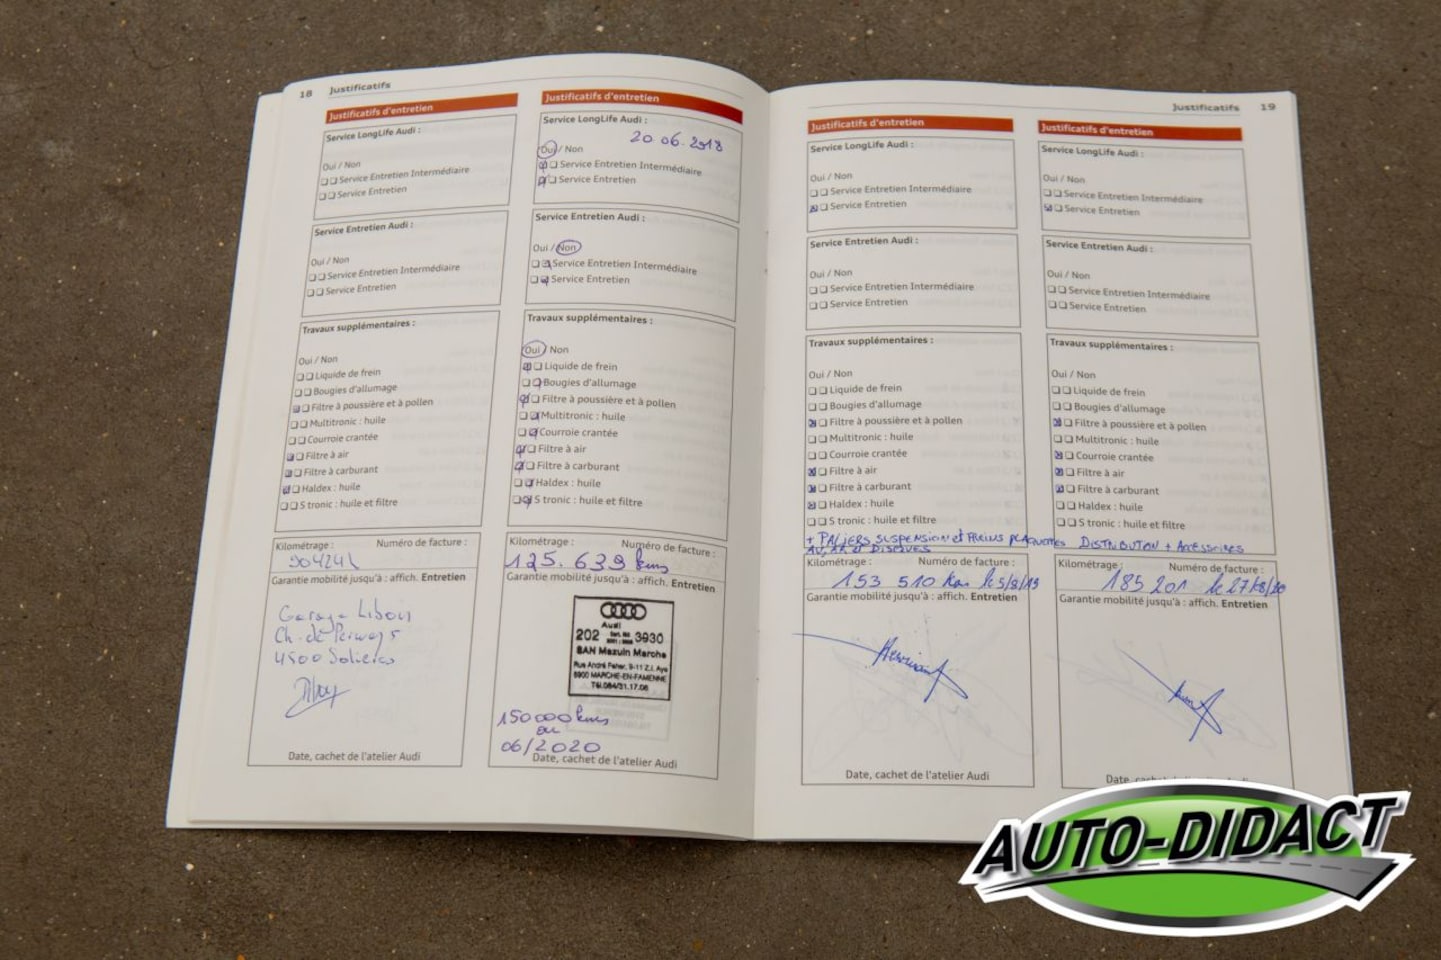 18 Justificatifs
Justificatifs d'entretien
Service LongLife Audi :
Oui / Non
Service Entretien Intermédiaire
Service Entretien
Service Entretien Audi :
Oui / Non
Service Entretien Intermédiaire
Service Entretien
Travaux supplémentaires :
Oui / Non
Liquide de frein
Bougies d'allumage
Filtre à poussière et à pollen
Multitronic : huile
Courroie crantée
Filtre à air
Filtre à carburant
Haldex : huile
S tronic : huile et filtre
Kilométrage : Numéro de facture :
Garantie mobilité jusqu'à : affich. Entretien
Garage Liboin
4500 Solières
Date, cachet de l'atelier Audi
Justificatifs d'entretien
Service LongLife Audi :
20.06.2018
Oui / Non
Service Entretien Intermédiaire
Service Entretien
Service Entretien Audi :
Oui / Non
Service Entretien Intermédiaire
Service Entretien
Travaux supplémentaires :
Oui / Non
Liquide de frein
Bougies d'allumage
Filtre à poussière et à pollen
Multitronic : huile
Courroie crantée
Filtre à air
Filtre à carburant
Haldex : huile
S tronic : huile et filtre
Kilométrage : Numéro de facture :
125.639 kms
Garantie mobilité jusqu'à : affich. Entretien
Audi
202 3930
SAN Mazuin Marche
Rue André Feher, 9-11 Z.I. Aye
6900 MARCHE-EN-FAMENNE
Tél.084/31.17.06
150000 kms
ou
06/2020
Date, cachet de l'atelier Audi
Justificatifs 19
Justificatifs d'entretien
Service LongLife Audi :
Oui / Non
Service Entretien Intermédiaire
Service Entretien
Service Entretien Audi :
Oui / Non
Service Entretien Intermédiaire
Service Entretien
Travaux supplémentaires :
Oui / Non
Liquide de frein
Bougies d'allumage
Filtre à poussière et à pollen
Multitronic : huile
Courroie crantée
Filtre à air
Filtre à carburant
Haldex : huile
S tronic : huile et filtre
+ PALIERS SUSPENSION et FREINS PLAQUETTES
AV, AR et DISQUES
Kilométrage : Numéro de facture :
153 510 Km le 5/8/19
Garantie mobilité jusqu'à : affich. Entretien
Date, cachet de l'atelier Audi
Justificatifs d'entretien
Service LongLife Audi :
Oui / Non
Service Entretien Intermédiaire
Service Entretien
Service Entretien Audi :
Oui / Non
Service Entretien Intermédiaire
Service Entretien
Travaux supplémentaires :
Oui / Non
Liquide de frein
Bougies d'allumage
Filtre à poussière et à pollen
Multitronic : huile
Courroie crantée
Filtre à air
Filtre à carburant
Haldex : huile
S tronic : huile et filtre
DISTRIBUTION + Accessoires
Kilométrage : Numéro de facture :
185 201 le 27/08/20
Garantie mobilité jusqu'à : affich. Entretien
Date, cachet de l'atelier Audi
AUTO-DIDACT